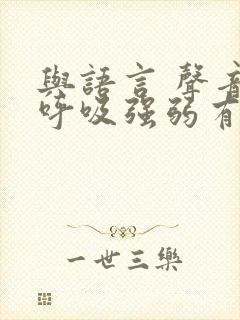 與語言 聲音
呼吸強弱有
一世三樂